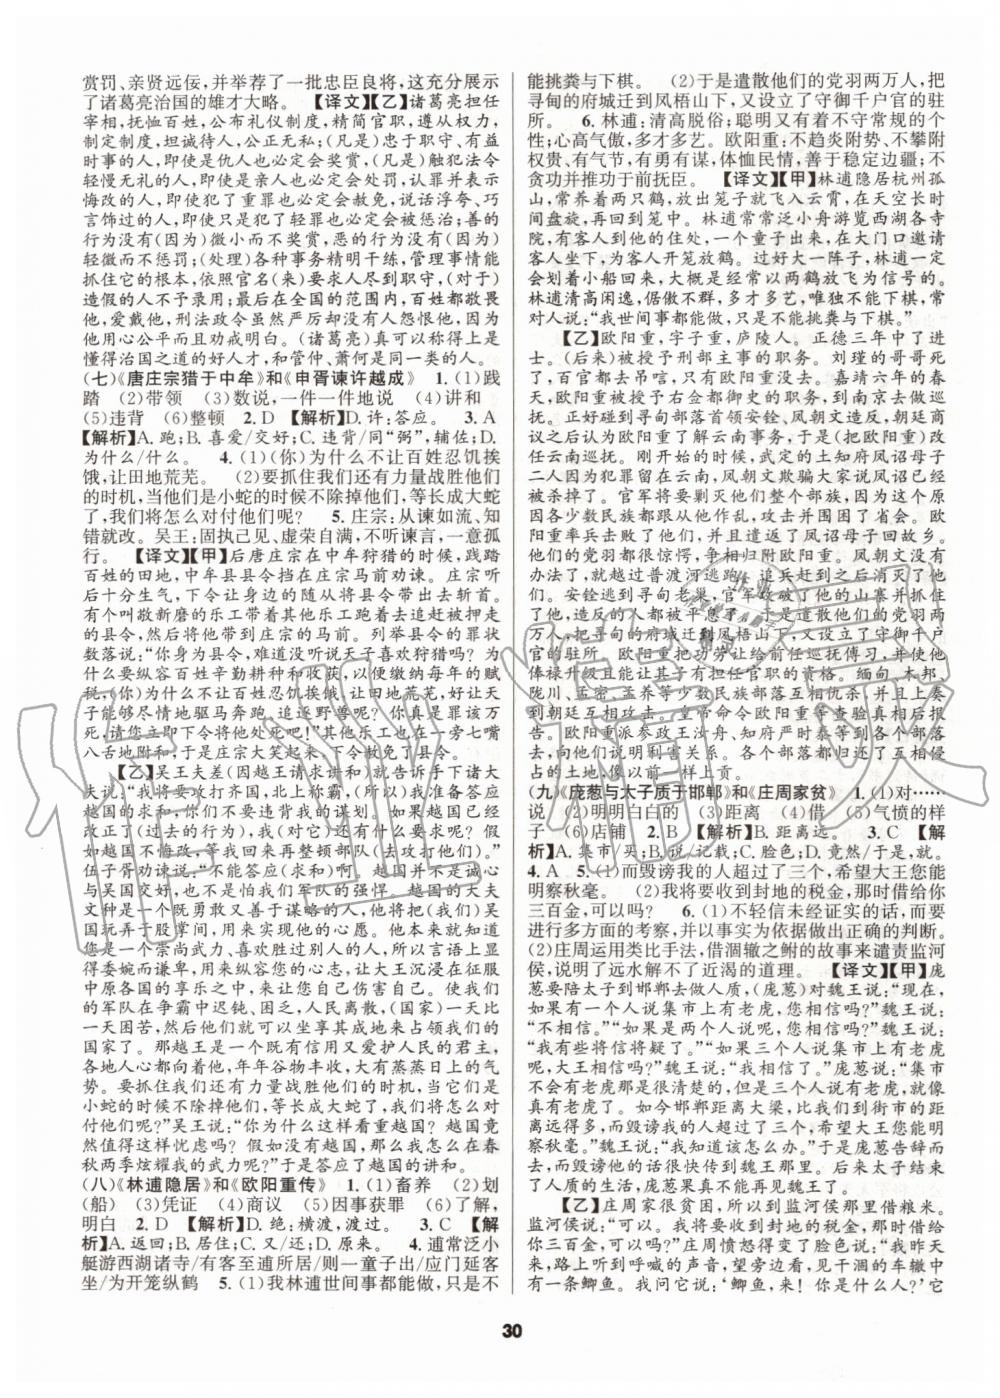 赏罚、亲贤远佞,并举荐了一批忠臣良将,这充分展示
了诸葛亮治国的雄才大略。 【译文】【乙】诸葛亮担任
宰相,抚恤百姓,公布礼仪制度,精简官职,遵从客观
制度,坦诚待人,公正无私;(凡是)尽力于职守、有益
时事的人,即使是仇人也必定会奖赏,(凡是)触犯法令
轻慢无礼的人,即使是亲人也必定会处罚,认罪并表示
悔改的人,即使犯了重罪也必定会赦免,说话浮夸、巧
言饰过的人,即使只犯了轻罪也必定会被惩治;善的
行为没有(因为)微小而不奖赏,恶的行为没有(因为)
轻微而不惩治。(他)处理各种事务精明干练,管理事情能
抓住它的根本,依照官职(来)要求人尽到职守,(对于)
造假的人不予录用;最后在全国的范围内,百姓都敬畏
他,爱戴他,刑法政令虽然严厉却没有人怨恨他,因为
他用心公平而且劝戒明白。(诸葛亮)真可以称得上是
懂得治国之道的好人才,和管仲、萧何是同一类的人。
(七)《唐庄宗猎于中牟》和《申胥谏许越成》 1.(1)践
踏 (2)带领 (3)数说,一件一件地说 (4)讲和
(5)违背 (6)整顿 2. D 【解析】D. 许:答应。 3. A
【解析】A. 跑;B. 喜爱/交好;C. 违背/同“弼”,辅佐;D.
为什么/什么。 4. (1)(你)为什么不让百姓忍饥挨
饿,让田地荒芜。 (2)要抓住我们还有力量战胜他们
的时机,当他们是小蛇的时候不除掉他们,等长成大蛇
了,我们将怎么对付他们呢? 5. 庄宗:从谏如流、知
错就改。吴王:固执己见、虚荣自满,不听谏言,一意孤
行。 【译文】【甲】后唐庄宗在中牟狩猎的时候,践踏
百姓的田地,中牟县县令挡在庄宗马前劝谏。庄宗听
后十分生气,下令让身边的随从将县令带出去斩首。
有个叫敬新磨的乐工带着其他乐工跑着去追赶被押走
的县令,然后将他带到庄宗的马前。列举县令的罪状
数落说:“你身为县令,难道没听说天子喜欢狩猎吗? 为
什么要纵容百姓辛勤耕种和收获,以便缴纳每年的赋
税?你为什么不让百姓忍饥挨饿、让田地荒芜,好让天
子能够尽情地驱马奔跑、追逐野兽呢? 你真是罪该万
死,请您立即下令将他处死吧!”其他乐工也在一旁七嘴
八舌地附和;于是庄宗大笑起来,下令赦免了县令。
【乙】吴王夫差(因越王请求讲和)就告诉手下诸大
夫说:“我还打算攻打齐国、北上称霸,(所以)我准备答应
越国的求和,你们不要违背我的谋划。如果越国已经
改正了(过去的行为),我(对它)还有什么要求呢? 如果
越国不改,等我伐齐回来再整顿部队(去攻打他们)。”
伍子胥劝谏说:“不能答应(求和)啊。越国并不是诚心
与吴国交好,也不是害怕我们军队的强悍。越国的大夫
文种是一个既勇敢又善于谋略的人,(他)要将我们吴
国玩弄于股掌间,用来实现他的心愿。他本来就知道
您是一个崇尚武力、喜欢胜过别人的人,所以言语上显
得委婉而谦卑,用来纵容您的心志,让大王沉浸在征服
中原各国的享乐之中,来让您自己伤害自己。使我们
的军队在争霸中迟钝、困乏,人民离散,(国家)一天比
一天困苦,然后他们就可以坐享其成地来占领我们的
国家了。那越王是一个既有信用又爱护人民的君主,
各地人心都向着他,年年谷物丰收,大有蒸蒸日上的气
势。要抓住我们还有力量战胜他们的时机,当它们是
小蛇的时候不除掉他们,等长成大蛇了,我们将怎么对
付他们呢?”吴王说:“你为什么这样看重越国? 越国竟
然值得这样忧虑吗? 假如没有越国,那么我怎么在春
秋两季炫耀我的武力呢?”于是答应了越国的讲和。
(八)《林逋隐居》和《欧阳重传》 1.(1)畜养 (2)划
(船) (3)凭证 (4)商议 (5)因事获罪 (6)了解,
明白 2. D 【解析】D. 绝:横渡,渡过。 3. C 【解
析】A. 返回;B. 居住;C. 或许;D. 原来。 4. 逋常泛小
艇游西湖诸寺/有客至逋所居/则一童子出/应门延客
坐/为开笼纵鹤 5. (1)我林逋世间事都能做,只是不
能挑粪与下棋。 (2)于是遣散他们的党羽两万人,把
寻甸的府城迁到凤梧山下,又设立了守御千户官的驻
所。 6. 林逋:清高脱俗;聪明又有着不守常规的个
性;心高气傲,多才多艺。欧阳重:不趋炎附势、不攀附
权贵、有气节,有勇有谋,体恤民情,善于稳定边疆;不
贪功并推功于前抚臣。 【译文】【甲】林逋隐居杭州孤
山,常养着两只鹤,放出了笼子就飞入云霄,在天空长时
间盘旋,再回到笼中。林逋常常泛小舟游览西湖各寺
院,有客人到他的住处,一个童子出来,在大门口邀请
客人坐下,为客人开笼放鹤。过好大一阵子,林逋一定
会划着小船回来,大概是经常以两鹤放飞为信号的。
林逋清高闲逸,倨傲不群,多才多艺,唯独不能下棋,常
对人说:“我世间事都能做,只是不能挑粪与下棋。”
【乙】欧阳重,字子重,庐陵人。正德三年中了进
士。(后来)被授予刑部主事的职务。刘瑾的哥哥死
了,百官都去吊唁,只有欧阳重不去。嘉靖六年的春
天,欧阳重被授予右佥都御史的职务,到南京去做应天
巡抚。正好碰到寻甸部落首领安铨、凤朝文造反,朝廷商
议之后认为欧阳重了解云南事务,于是(把欧阳重)改为云南
巡抚。刚开始的时候,武定的土知府凤诏母子
二人因为犯罪留在云南,凤朝文欺骗大家说凤诏已经
死了。官军将要剿灭他们整个部族,因为这个原
因各少数民族都跟从他作乱,攻击并围困了省会。欧
阳重率兵去反击他们,并且遣送凤诏母子回故乡。
他们的党羽都很惊愕,争相归附欧阳重。凤朝文没有
办法了,就想经过普渡河逃跑,追兵赶到之后消灭了他
们。安铨逃到寻甸的老巢,官军攻破了他的山寨并抓住
了他,造反的人都被平息了。于是遣散他们的党羽两
万人,把寻甸的府城迁到凤梧山下,又设立了守御千户
官的驻所。欧阳重把功劳让给前任巡抚傅习,并使他
俸禄升级且能让其子有担任官职的资格。缅甸、木邦、
陇川、孟密、孟养等少数民族部落互相仇杀,并且上奏
到朝廷互相攻击,皇帝命令欧阳重等查验真相后报
告。欧阳重派参政王汝舟、知府严时泰等到各个部落
去,向他们说明利害关系。各个部落都归还了互相侵
占的土地,像以前一样上贡。
(九)《庞葱与太子质于邯郸》和《庄周家贫》 1.(1)对……
说 (2)明明白白的 (3)距离 (4)借 (5)气愤的样
子 (6)店铺 2. B 【解析】B. 距离远。 3. C 【解
析】A. 集市/买;B. 说/记载;C. 脸色;D. 竟然/于是,就。
4. A 5. (1)而毁谤我的人超过了三个,希望大王您能
明察秋毫。 (2)我将要收到封地的税金,那时借给你
三百金,可以吗? 6. (1)不轻信未经证实的话,而要
进行多方面的考察,并以此为依据做出正确的判断。
(2)庄周运用类比手法,借涸辙之鲋的故事来谴责监河
侯,说明了远水解不了近渴的道理。 【译文】【甲】庞
葱要陪太子到邯郸去做人质,(庞葱)对魏王说:“现在,
如果有一个人说集市上有老虎,您相信吗?”魏王说:
“不相信。”“如果是两个人说呢,您相信吗?”魏王说:
“我有些将信将疑了。”“如果三个人说集市上有老虎
呢,大王相信吗?”魏王说:“我相信了。”庞葱说:“集市
上不会有老虎那是很清楚的,但是三个人说有老虎,就像
真有老虎了。如今邯郸距离大梁,比我们到街市的距
离远得多,而毁谤我的人超过了三个,希望大王您能明
察秋毫。”魏王说:“我知道该怎么办。”于是庞葱告辞而
去,而毁谤他的话很快传到魏王那里。后来太子结束
了人质的生活,庞葱果真不能再见魏王了。
【乙】庄周家很贫困,所以向监河侯那里借粮米。
监河侯说:“可以。我将要收到封地的税金,那时借给
你三百金,可以吗?”庄周愤怒得变了脸色说:“我昨天
来,路上听到呼喊的声音,望旁边看,见干涸的车辙中
有一条鲫鱼。我问它说:‘鲫鱼,来! 你是什么人?’它
30